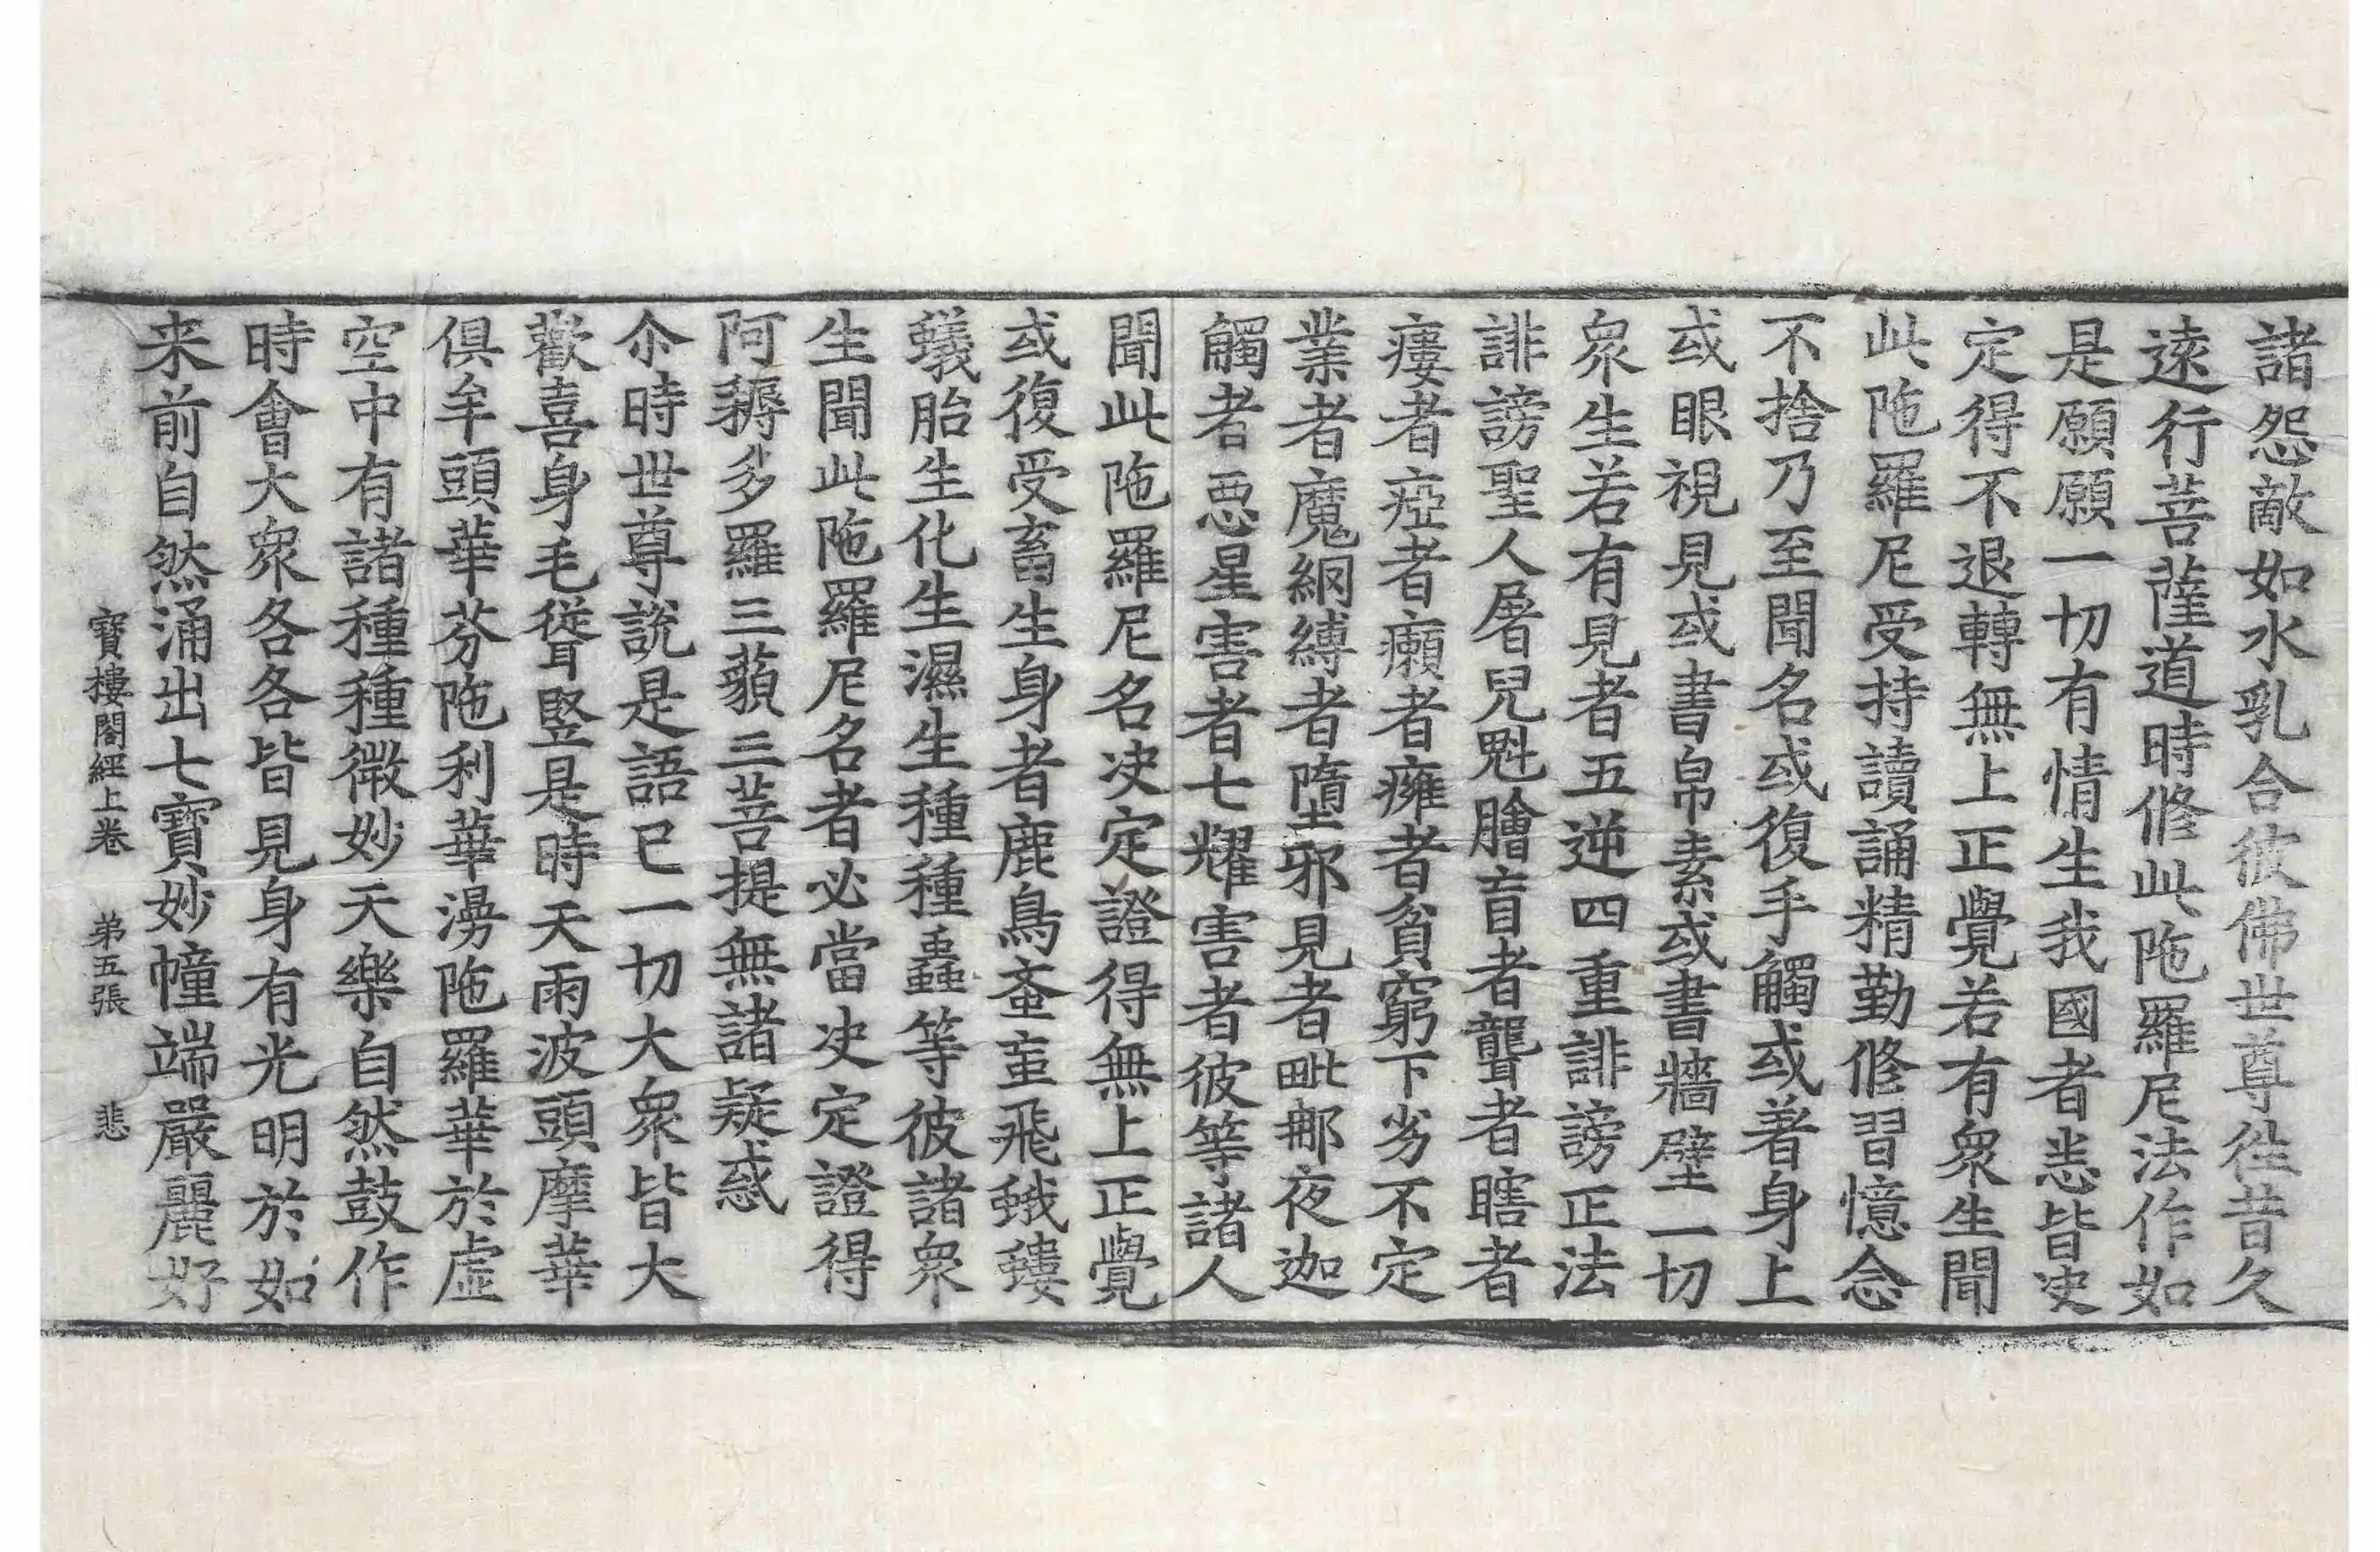 諸怨敵如水乳合彼佛世尊徃昔久
遠行菩薩道時修此陁羅尼法作如
是願願一切有情生我國者恙皆决
定得不退轉無上正覺若有衆生聞
此陁羅尼受持讀誦精勤修習憶念
不捨乃至聞名或復手觸或著身上
或眼視見或書帛素或書牆壁一切
衆生若有見者五逆四重誹謗正法
誹謗聖人屠兒魁膾盲者聾者瞎者
瘻者瘂者癩者癰者貧窮下劣不定
業者魔網縛者墮邪見者毗那夜迦
觸者惡星害者七耀害者彼等諸人
聞此陁羅尼名决定證得無上正覺
或復受畜生身者鹿鳥蚉䖟飛蛾螻
蟻胎生化生濕生種種蟲等彼諸衆
生聞此陁羅尼名者必當决定證得
阿耨多羅三藐三菩提無諸疑惑
尒時世尊說是語已一切大衆皆大
歡喜身毛聳竪是時天雨波頭摩華
俱牟頭華芬陁利華湯陁羅華於虛
空中有諸種種微妙天樂自然鼓作
時會大衆各各皆見身有光明於如
来前自然涌出七寶妙幢端嚴麗好
寶樓閣經上卷　苐五張　悲